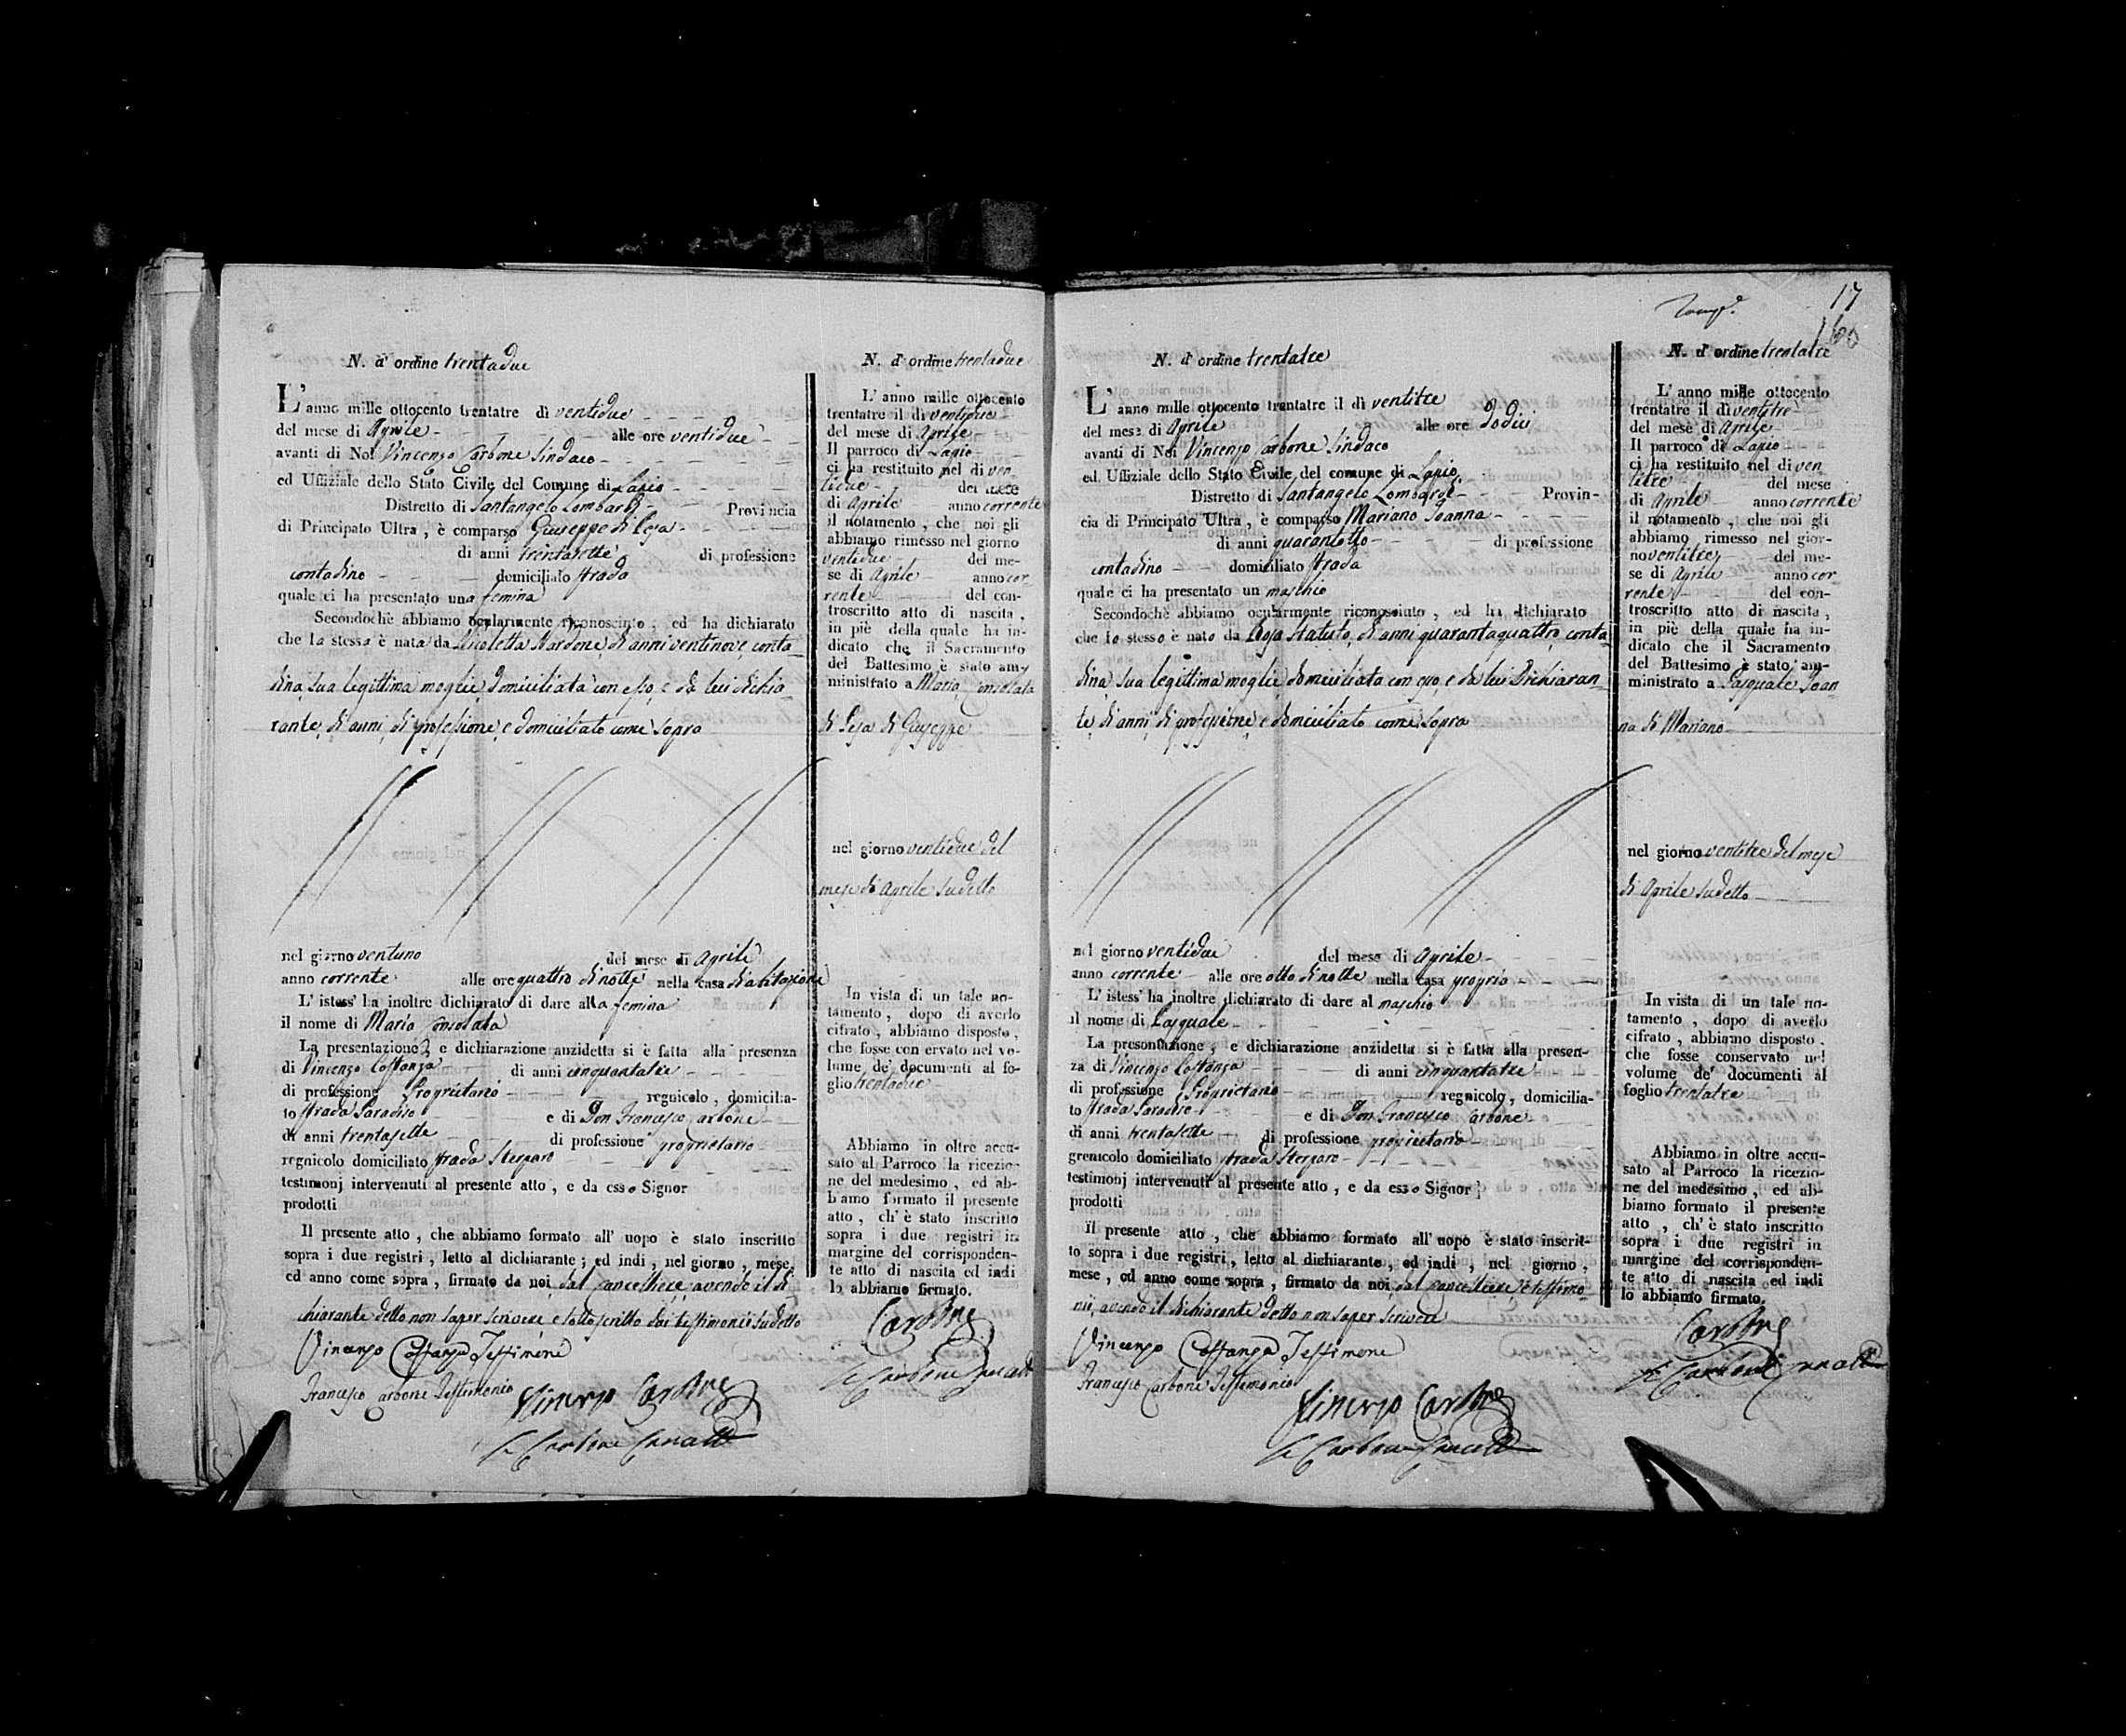 N. d' ordine trentadue
L' anno mille ottocento trentatre dì ventidue
del mese di Aprile alle ore ventidue
avanti di Noi Vincenzo Carbone Sindaco
ed Uffiziale dello Stato Civile del Comune di Lapio
Distretto di Santangelo Lombardi Provincia
di Principato Ultra , è comparso Giuseppe di Leja
di anni trentasette di professione
contadino domiciliato strada
quale ci ha presentato una femina
Secondochè abbiamo ocularmente riconosciuto , ed ha dichiarato
che la stessa è nata da Nicoletta Nardone, di anni ventinove, conta-
dina, sua legittima moglie, domiciliata con esso, e da lui dichia-
rante, di anni, di professione, e domiciliato come sopra
nel giorno ventuno del mese di Aprile
anno corrente alle ore quattro di notte nella casa di abitazione
L' istess' ha inoltre dichiarato di dare alla femina
il nome di Maria Consolata
La presentazione, e dichiarazione anzidetta si è fatta alla presenza
di Vincenzo Costanza di anni cinquantatre
di professione Proprietario regnicolo , domicilia-
to strada Paradiso e di Don Francesco Carbone
di anni trentasette di professione proprietario
regnicolo domiciliato strada Sterparo
testimonj intervenuti al presente atto , e da esso Signor
prodotti
Il presente atto , che abbiamo formato all' uopo è stato inscritto
sopra i due registri , letto al dichiarante ; ed indi , nel giorno , mese,
ed anno come sopra , firmato da noi, dal Cancelliere, avendo il di
chiarante detto non saper scrivere e sottoscritto dai testimonii sudetto
Vincenzo Costanza Testimone
Francesco Carbone Testimonio
Vincenzo Carbone
Carbone
N. d' ordine trentadue
L' anno mille ottocento
trentatre il dì ventidue
del mese di Aprile
Il parroco di Lapio
ci ha restituito nel dì ven
tidue del mese
di Aprile anno corrente
il notamento , che noi gli
abbiamo rimesso nel giorno
ventidue del me-
se di Aprile anno cor-
rente del con-
troscritto atto di nascita ,
in piè della quale ha in-
dicato che il Sacramento
del Battesimo è stato am-
ministrato a Maria Consolata
di Leja di Giuseppe
nel giorno ventidue del
mese di Aprile sudetto
In vista di un tale no-
tamento , dopo di averlo
cifrato , abbiamo disposto ,
che fosse conservato nel vo-
lume de' documenti al fo-
glio trentadue
Abbiamo in oltre accu-
sato al Parroco la ricezio-
ne del medesimo , ed ab-
biamo formato il presente
atto , ch' è stato inscritto
sopra i due registri in
margine del corrisponden-
te atto di nascita ed indi
lo abbiamo firmato.
Carbone
Carbone
17
160
N. d' ordine trentatre
L' anno mille ottocento trentatre il dì ventitre
del mese di Aprile alle ore dodici
avanti di Noi Vincenzo Carbone Sindaco
ed Uffiziale dello Stato Civile del comune di Lapio
Distretto di Santangelo Lombardi Provin-
cia di Principato Ultra , è comparso Mariano Joanna
di anni quarantotto di professione
contadino domiciliato strada
quale ci ha presentato un maschio
Secondochè abbiamo ocularmente riconosciuto , ed ha dichiarato
che lo stesso è nato da Rosa Statuto, di anni quarantaquattro, conta
dina, sua legittima moglie domiciliata con esso, e da lui Dichiaran-
te, di anni, di professione, e domiciliato come sopra
nel giorno ventidue del mese di Aprile
anno corrente alle ore otto di notte nella casa propria
L' istess' ha inoltre dichiarato di dare al maschio
il nome di Pasquale
La presentazione , e dichiarazione anzidetta si è fatta alla presen-
za di Vincenzo Costanza di anni cinquantatre
di professione Proprietario regnicolo, domicilia-
to strada Paradiso e di Don Francesco Carbone
di anni trentasette di professione proprietario
grenicolo domiciliato strada Sterparo
testimonj intervenuti al presente atto , e da esso Signor
prodotti
Il presente atto , che abbiamo formato all' uopo è stato inscrit-
to sopra i due registri, letto al dichiarante, ed indi , nel giorno ,
mese , ed anno come sopra , firmato da noi, dal Cancelliere, e testimo-
nii, avendo il dichiarante detto non saper scrivere
Vincenzo Costanza Testimone
Francesco Carbone Testimonio
Vincenzo Carbone
Carbone
N. d' ordine trentatre
L' anno mille ottocento
trentatre il dì ventitre
del mese di Aprile
Il parroco di Lapio
ci ha restituito nel dì ven
titre del mese
di Aprile anno corrente
il notamento , che noi gli
abbiamo rimesso nel gior-
no ventitre del me-
se di Aprile anno cor-
rente del con-
troscritto atto di nascita ,
in piè della quale ha in-
dicato che il Sacramento
del Battesimo è stato am-
ministrato a Pasquale Joan-
na di Mariano
nel giorno ventitre del mese
di Aprile sudetto
In vista di un tale no-
tamento , dopo di averlo
cifrato , abbiamo disposto .
che fosse conservato nel
volume de' documenti al
foglio trentatre
Abbiamo in oltre accu-
sato al Parroco la ricezio-
ne del medesimo , ed ab-
biamo formato il presente
atto , ch' è stato inscritto
sopra i due registri in
margine del corrisponden-
te atto di nascita ed indi
lo abbiamo firmato.
Carbone
Carbone